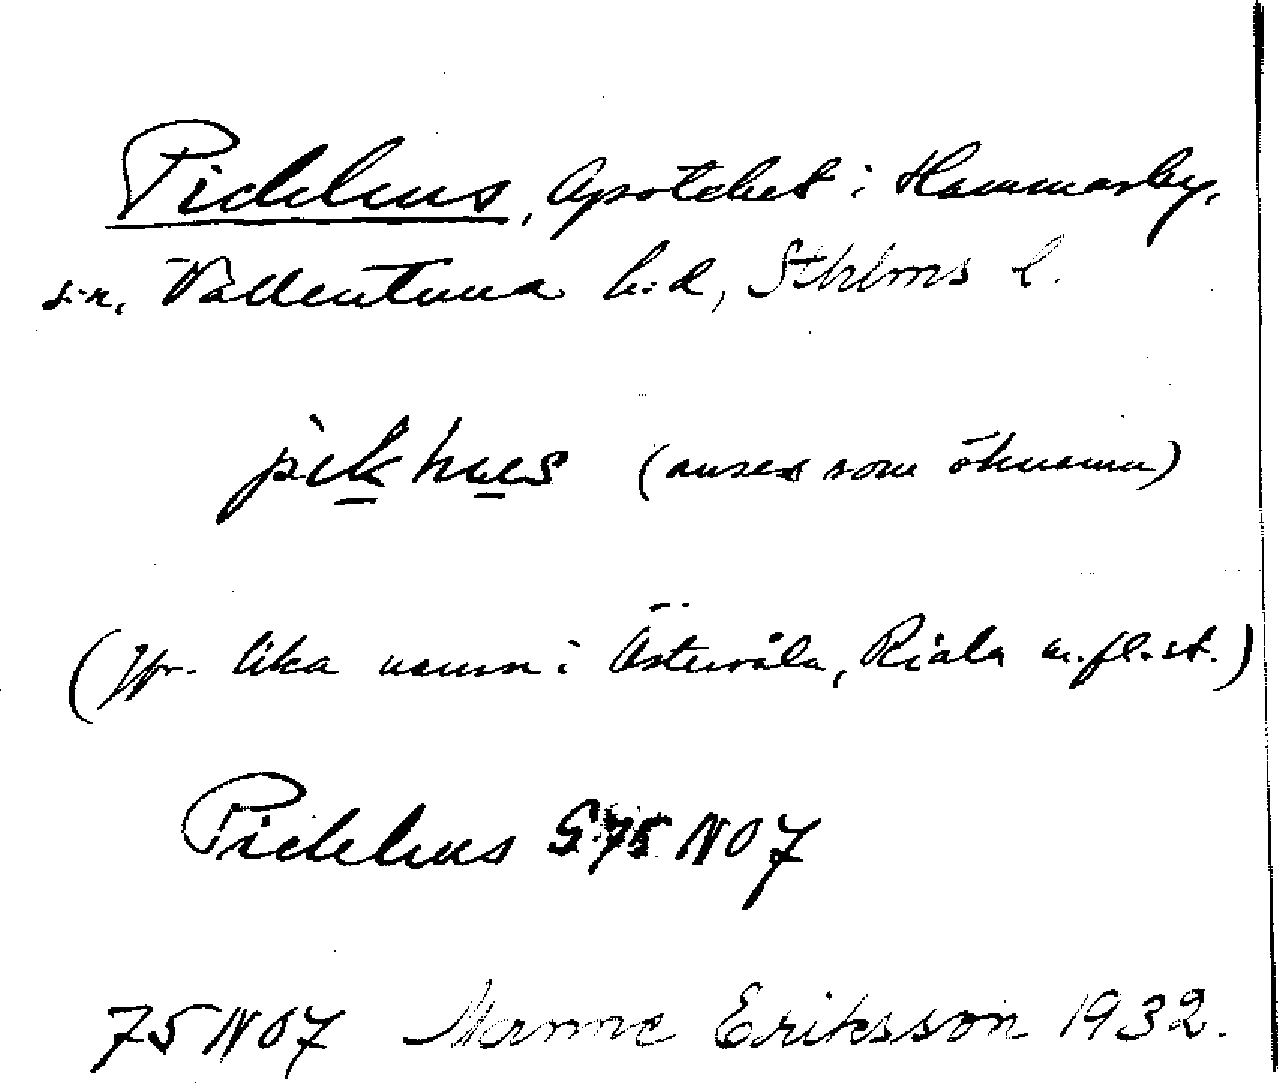 Pickhus, Apoteket i Hammarby,
s:n, Vallentuna h:d, Sthlms l.
pikhus (anses som öknamn)
(Jfr. lika namn i Östervåla, Riala m.fl.st.)
Pickhus S 75 NO7
75 NO7 Manne Eriksson 1932.